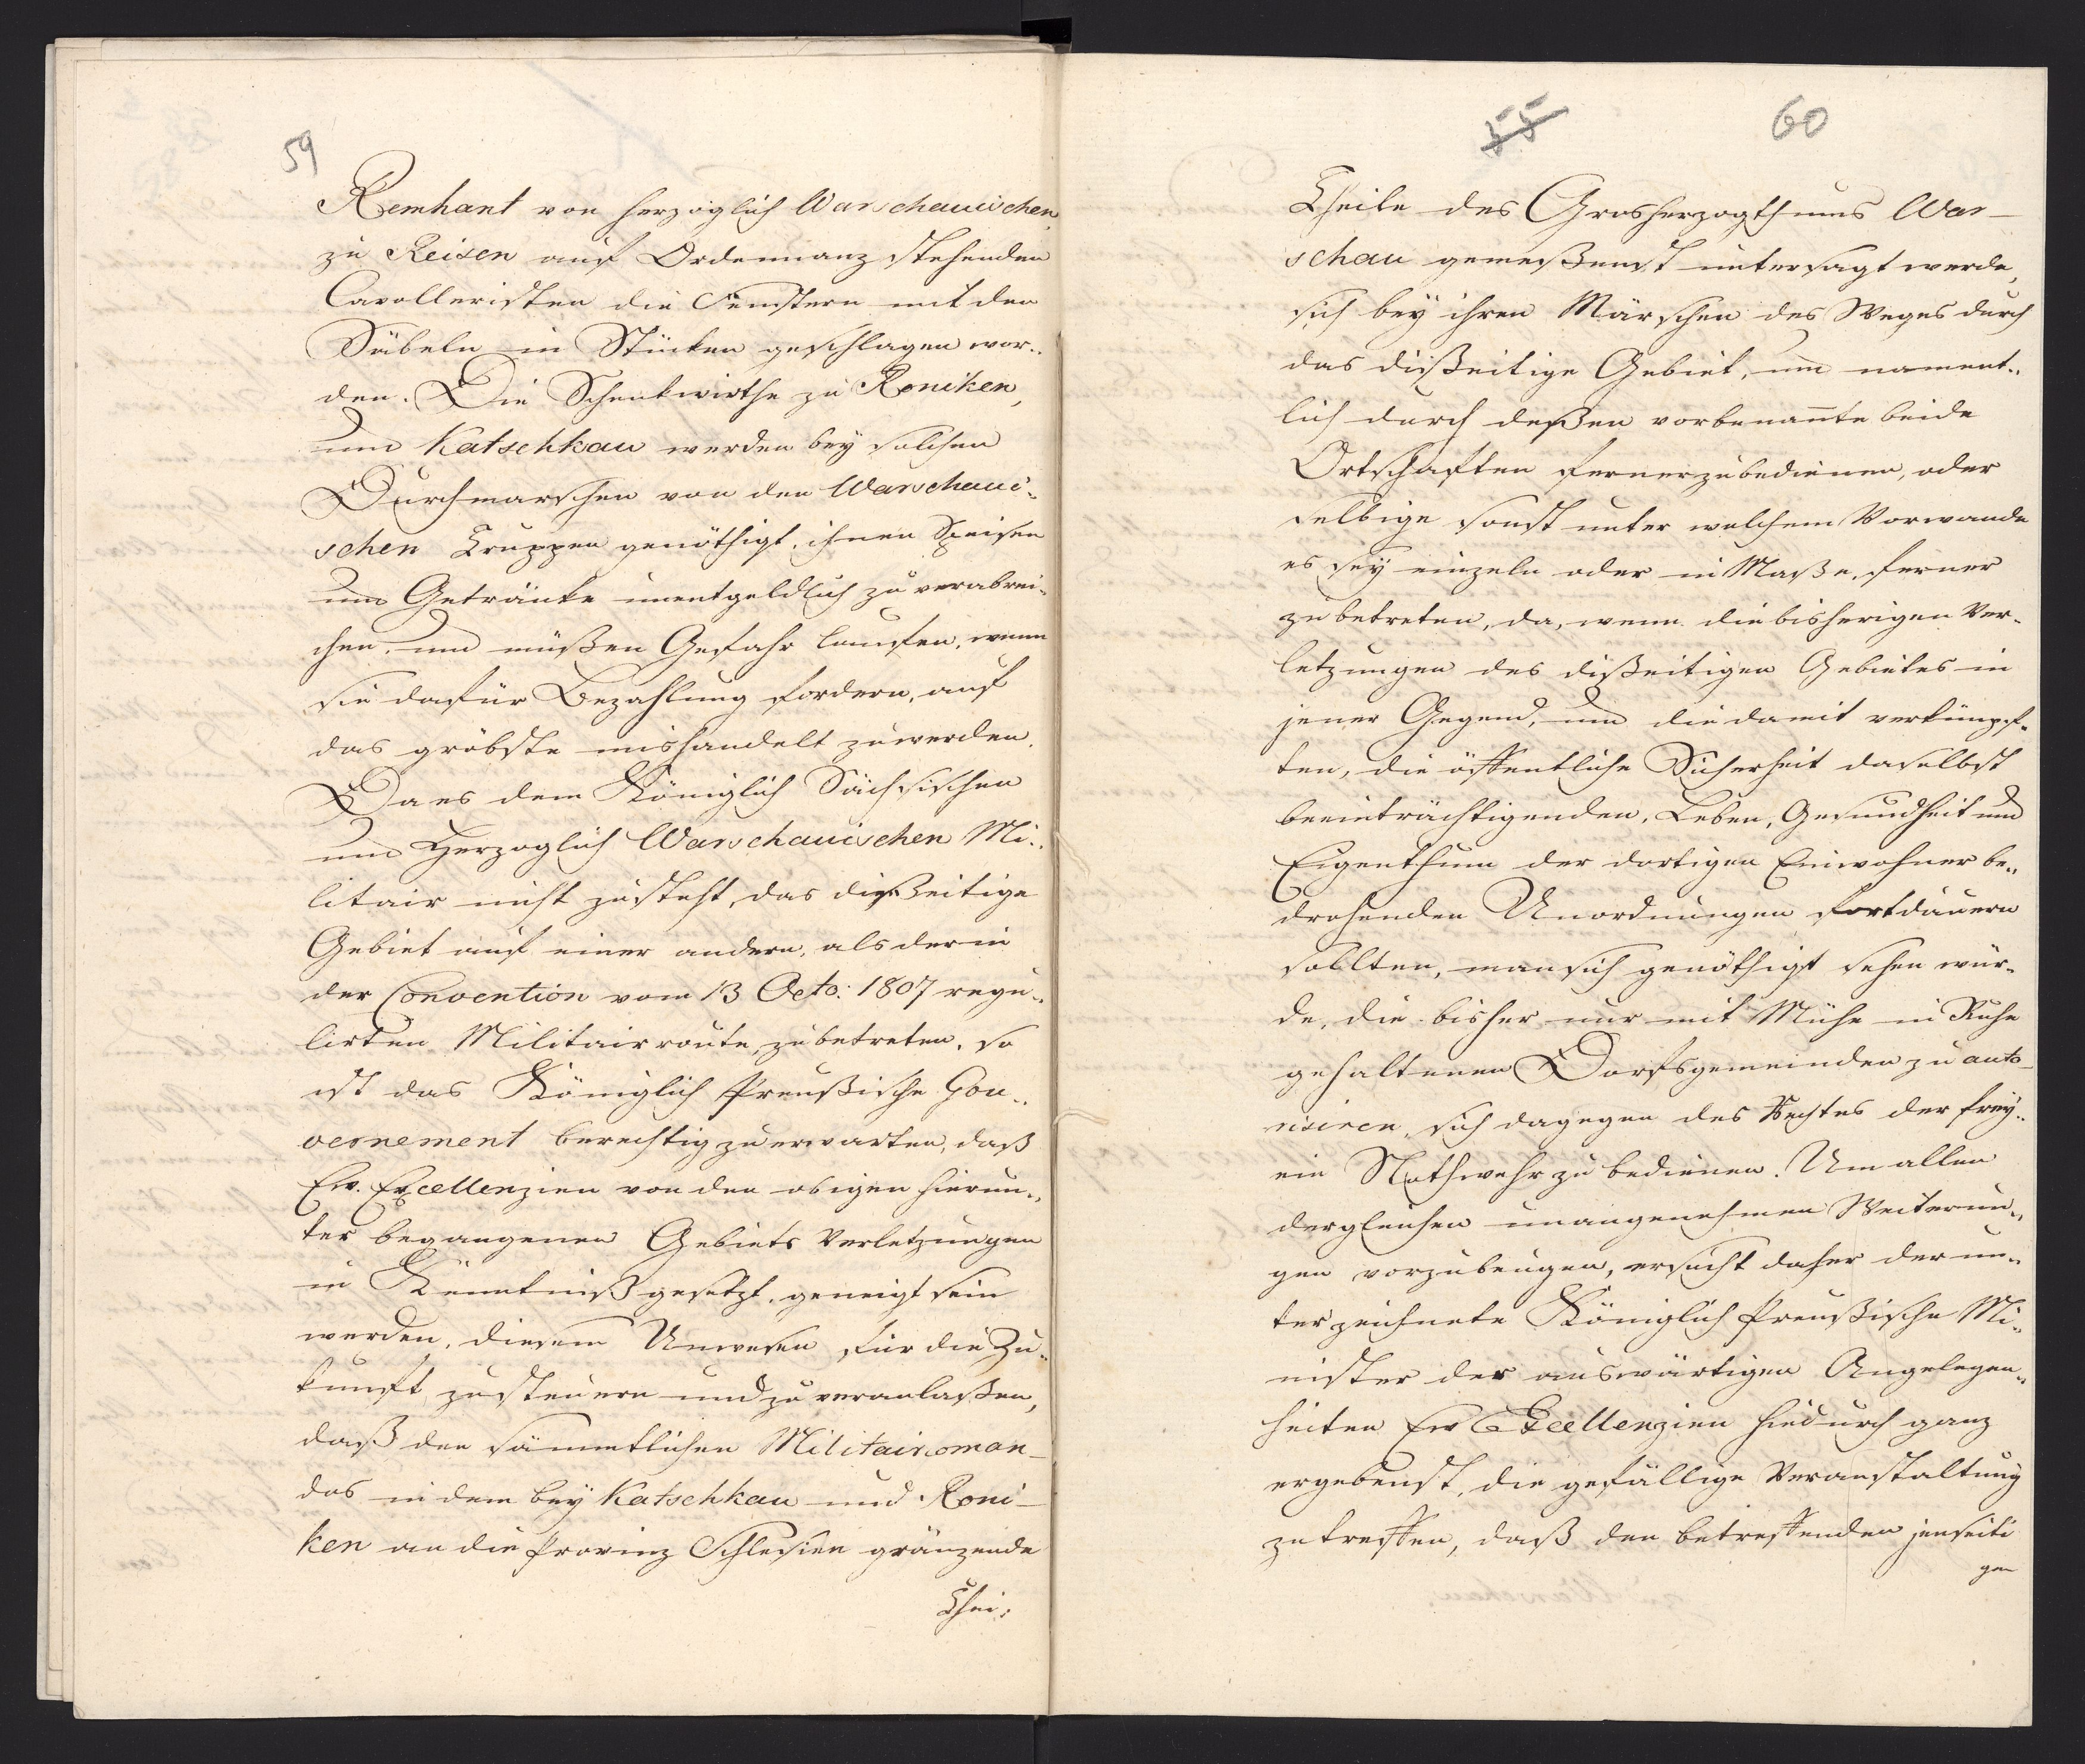 59
Remhant von herzoglich Warschauischen,
zu Reisen auf Ordonnanz stehenden
Cavalleristen die Fenstern mit den
Säbeln in Stücken geschlagen wor-
den. Die Schenkwirthe zu Roniken,
und Katschkau werden bey solchen
Durchmarschen von den Warschaui-
schen Truppen genöthigt, ihnen Speisen
und Getränke unentgeldlich zu verabrei-
chen, und müßen Gefahr laufen, wenn
sie dafür Bezahlung fordern, auf
das gröbste mishandelt zu werden.
Da es dem Königlich Sächsischen
und Herzoglich Warschauischen Mi-
litair nicht zusteht, das dießeitige
Gebiet auf einer andern, als der in
der Convention vom 13 Octo: 1807 regu-
lirten Militairroute, zu betreten, so
ist das Königlich Preußische Gou-
vernement berechtig zu erwarten, daß
Ew. Excellenzien von den obigen hierun-
ter begangenen Gebiets Verletzungen
in Kenntniß gesetzt, geneigt sein
werden, diesem Unwesen für die Zu-
kunft zu steuern und zu veranlaßen,
daß den sämmtlichen Militaircoman-
dos in dem bey Katschkau und Roni-
ken an die Provinz Schlesien gränzende
Thei-
55
60
Theile des Grosherzogthums War-
schau gemeßenst untersagt werde,
sich bey ihren Märschen des Weges durch
das dißeitige Gebiet, und nament-
lich durch deßen vorbenannte beide
Ortschaften ferner zu bedienen, oder
selbige sonst unter welchem Vorwande
es sey einzeln oder in Maße, ferner
zu betreten, da, wenn die bisherigen Ver-
letzungen des dißeitigen Gebietes in
jener Gegend, und die damit verknüpf-
ten, die öffentliche Sicherheit daselbst
beeinträchtigenden, Leben, Gesundheit und
Eigenthum der dortigen Einwohner be-
drohenden Unordnungen fortdauern
sollten, man sich genöthigt sehen wür-
de, die bisher nur mit Mühe in Ruhe
gehaltenen Dorfsgemeinden zu auto-
risiren, sich dagegen des Rechtes der frey-
ein Nothwehr zu bedienen. Um allen
dergleichen unangenehmen Weiterun-
gen vorzubeugen, ersucht daher der un-
terzeichnete Königlich Preußische Mi-
nister der auswärtigen Angelegen-
heiten Ew Excellenzien hiedurch ganz
ergebenst, die gefällige Veranstaltung
zu treffen, daß den betreffenden jenseiti
gen